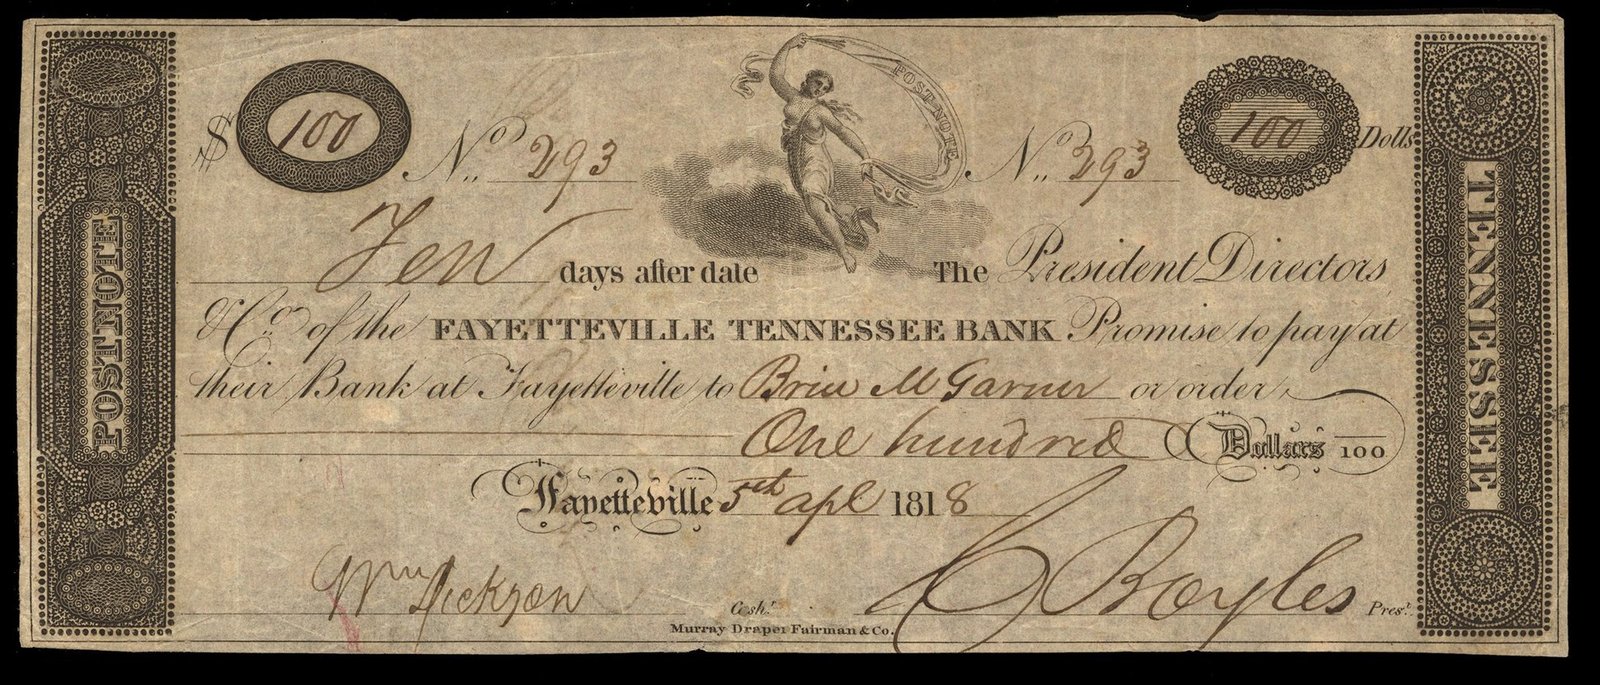 POST NOTE
$ 100 No. 293
POST-NOTE
No. 293 100 Dolls
TENNESSEE
Ten days after date The President Directors
& Co. of the FAYETTEVILLE TENNESSEE BANK Promise to pay at
their Bank at Fayetteville to Brice M Garner or order
One hundred Dollars 100
Fayetteville 5th apl 1818
Wm Dickson Cash.r Boyles Pres.t
Murray Draper Fairman & Co.